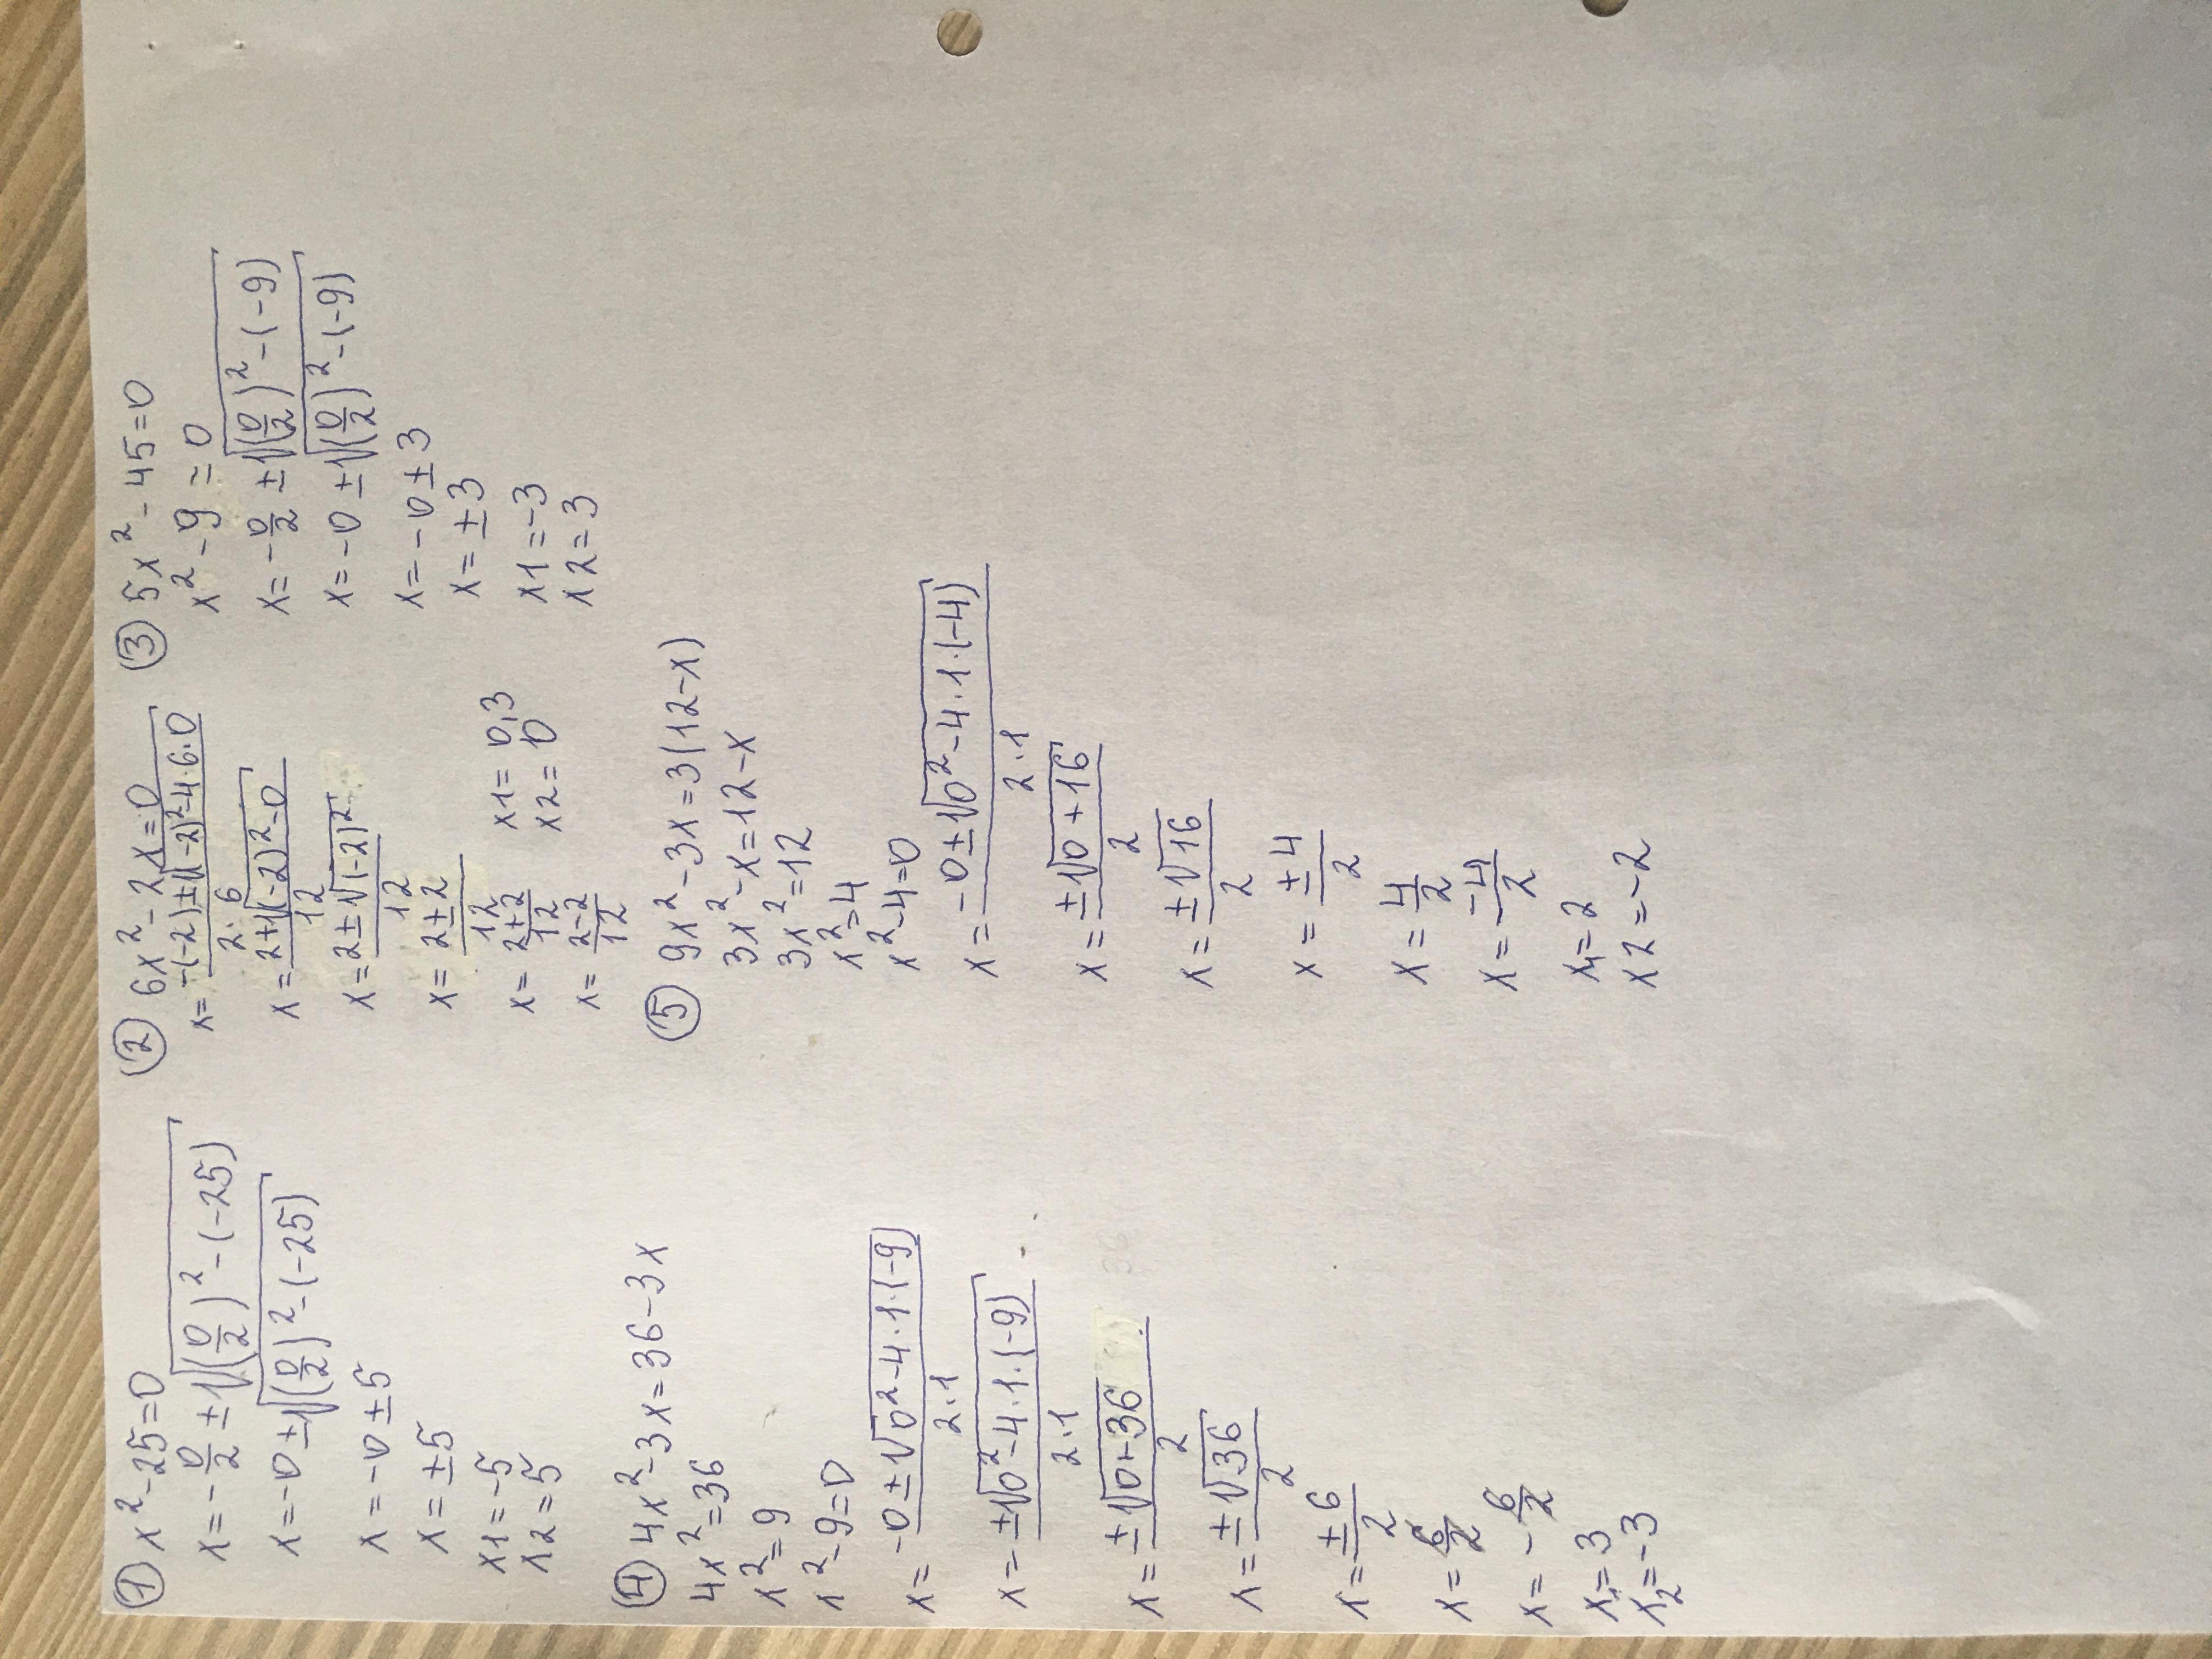 ① x²-25=0
x=-0/2±√((0/2)²-(-25))
x=-0±√((0/2)²-(-25))
x=-0±5
x=±5
x1=-5
x2=5
② 6x²-2x=0
x=(-(-2)±√((-2)²-4·6·0))/(2·6)
x=(2±√((-2)²-0))/12
x=(2±√((-2)²))/12
x=(2±2)/12
x=(2+2)/12
x=(2-2)/12
x1=0,3
x2=0
③ 5x²-45=0
x²-9=0
x=-0/2±√((0/2)²-(-9))
x=-0±√((0/2)²-(-9))
x=-0±3
x=±3
x1=-3
x2=3
④ 4x²-3x=36-3x
4x²=36
x²=9
x²-9=0
x=(-0±√(0²-4·1·(-9)))/(2·1)
x=(±√(0²-4·1·(-9)))/(2·1)
x=(±√(0+36))/2
x=(±√36)/2
x=(±6)/2
x=6/2
x=-6/2
x1=3
x2=-3
⑤ 9x²-3x=3(12-x)
3x²-x=12-x
3x²=12
x²=4
x²-4=0
x=(-0±√(0²-4·1·(-4)))/(2·1)
x=(±√(0+16))/2
x=(±√16)/2
x=(±4)/2
x=4/2
x=-4/2
x1=2
x2=-2